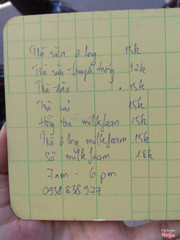 Trà sữa ô long 15k
Trà sữa truyền thống 12k
Trà đào 15k
Trà vải 15k
Hồng trà milkfoam 15k
Trà ô long milkfoam 15k
Sô milkfoam 18k
7am - 6pm
0938 838 977